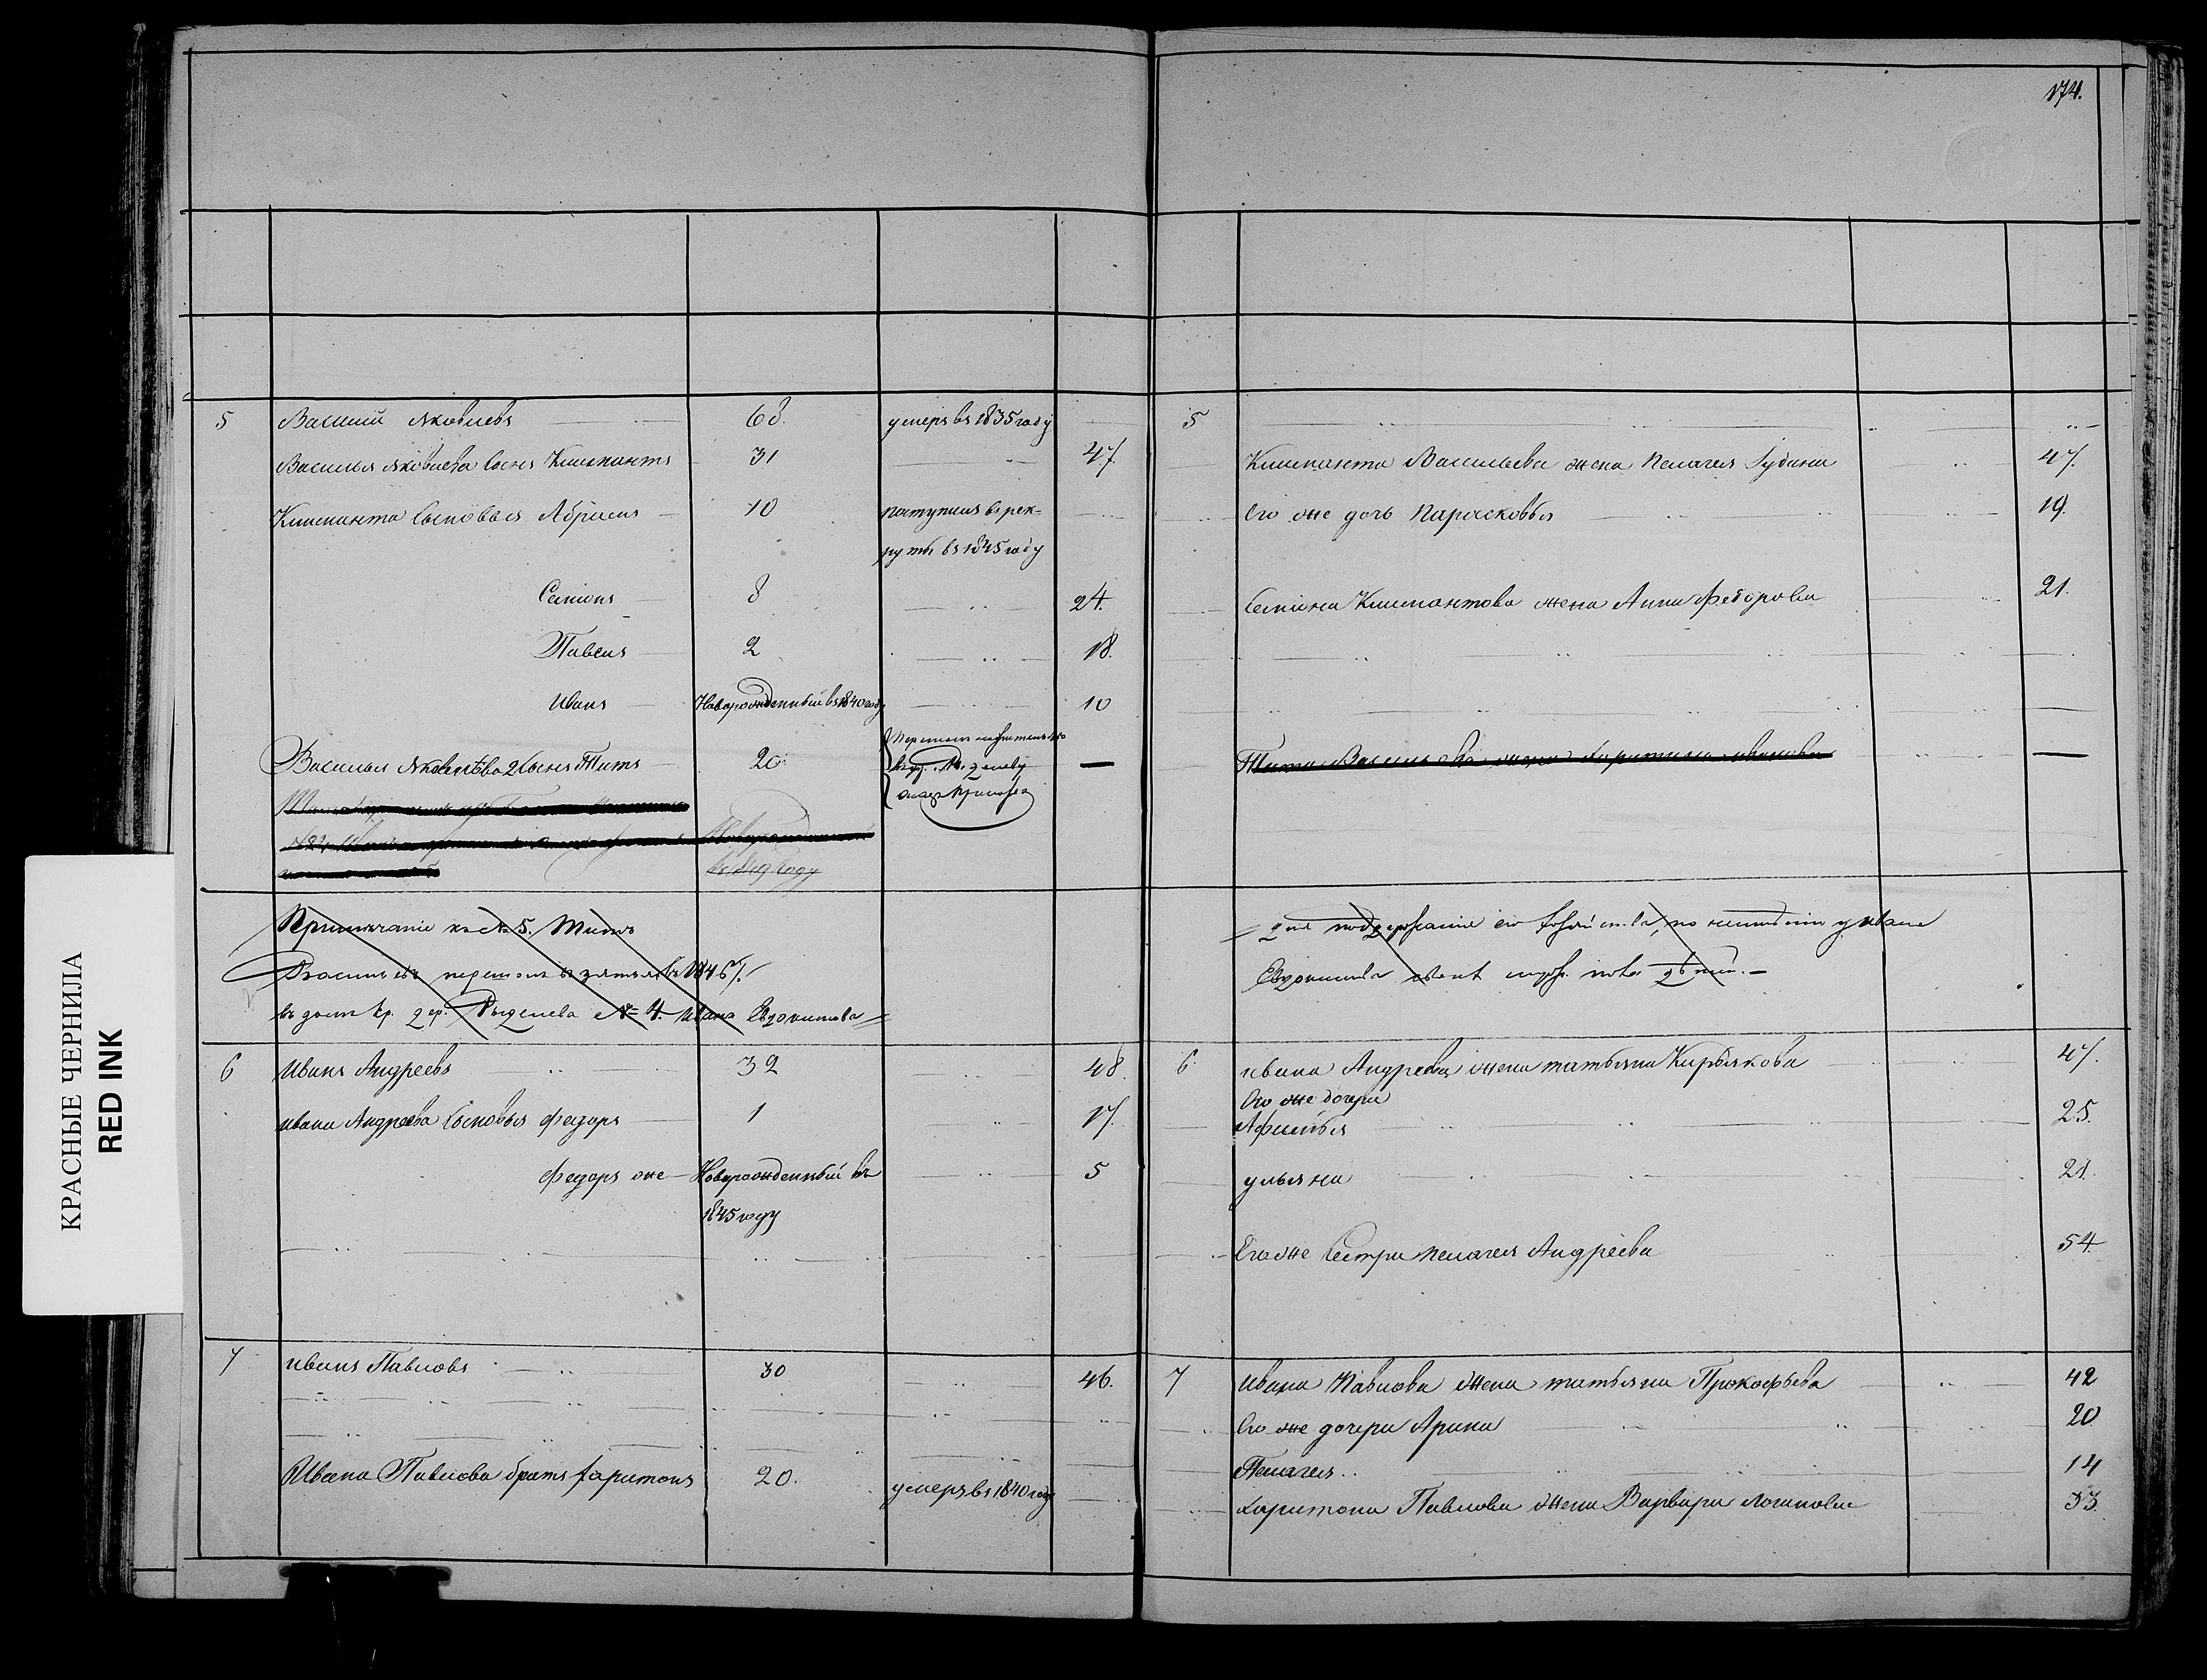 174.
КРАСНЫЕ ЧЕРНИЛА
RED INK
5 Василий Яковлевъ 68. умеръ въ 1835 году
Василья Яковлева сынъ Климантъ 31 47.
Климанта сыновья Абрамъ 10 поступилъ в рек-
руты въ 1845 году
Семионъ 8 24.
Павелъ 2 18.
Иванъ Новорожденный въ 1840 году 10
Василья Яковлева 2 сынъ Титъ 20
Новорожденный
году
Примѣчаніе къ № 5. Титъ
Васильевъ перешолъ въ зятья въ 1846 г.
въ домъ кр. дер. № 4. Ивана Евдокимова
6 Иванъ Андреевъ 32 48.
Ивана Андреева сыновья Федоръ 1 17.
Федоръ же Новорожденный въ 5
1845 году
7 Иванъ Павловъ 30 46.
Ивана Павлова братъ Харитонъ 20. умеръ въ 1840 году
5
Климанта Васильева жена Пелагея Губина 47.
Его же дочь Парасковья 19.
Семиона Климантова жена Анна Федорова 21.
Тита Васильева жена Харитина Иванова
для поддержанія его по неимѣнію у Ивана
Евдокимова
6 Ивана Андреева жена Татьяна Кирьякова 47.
Его же дочери
Афимья 25.
Ульяна 21.
Его же сестра Пелагея Андреева 54.
7 Ивана Павлова жена Татьяна Прокофьева 42
Его же дочери Арина 20
Пелагея 14
Харитона Павлова жена Варвара Логинова 33.